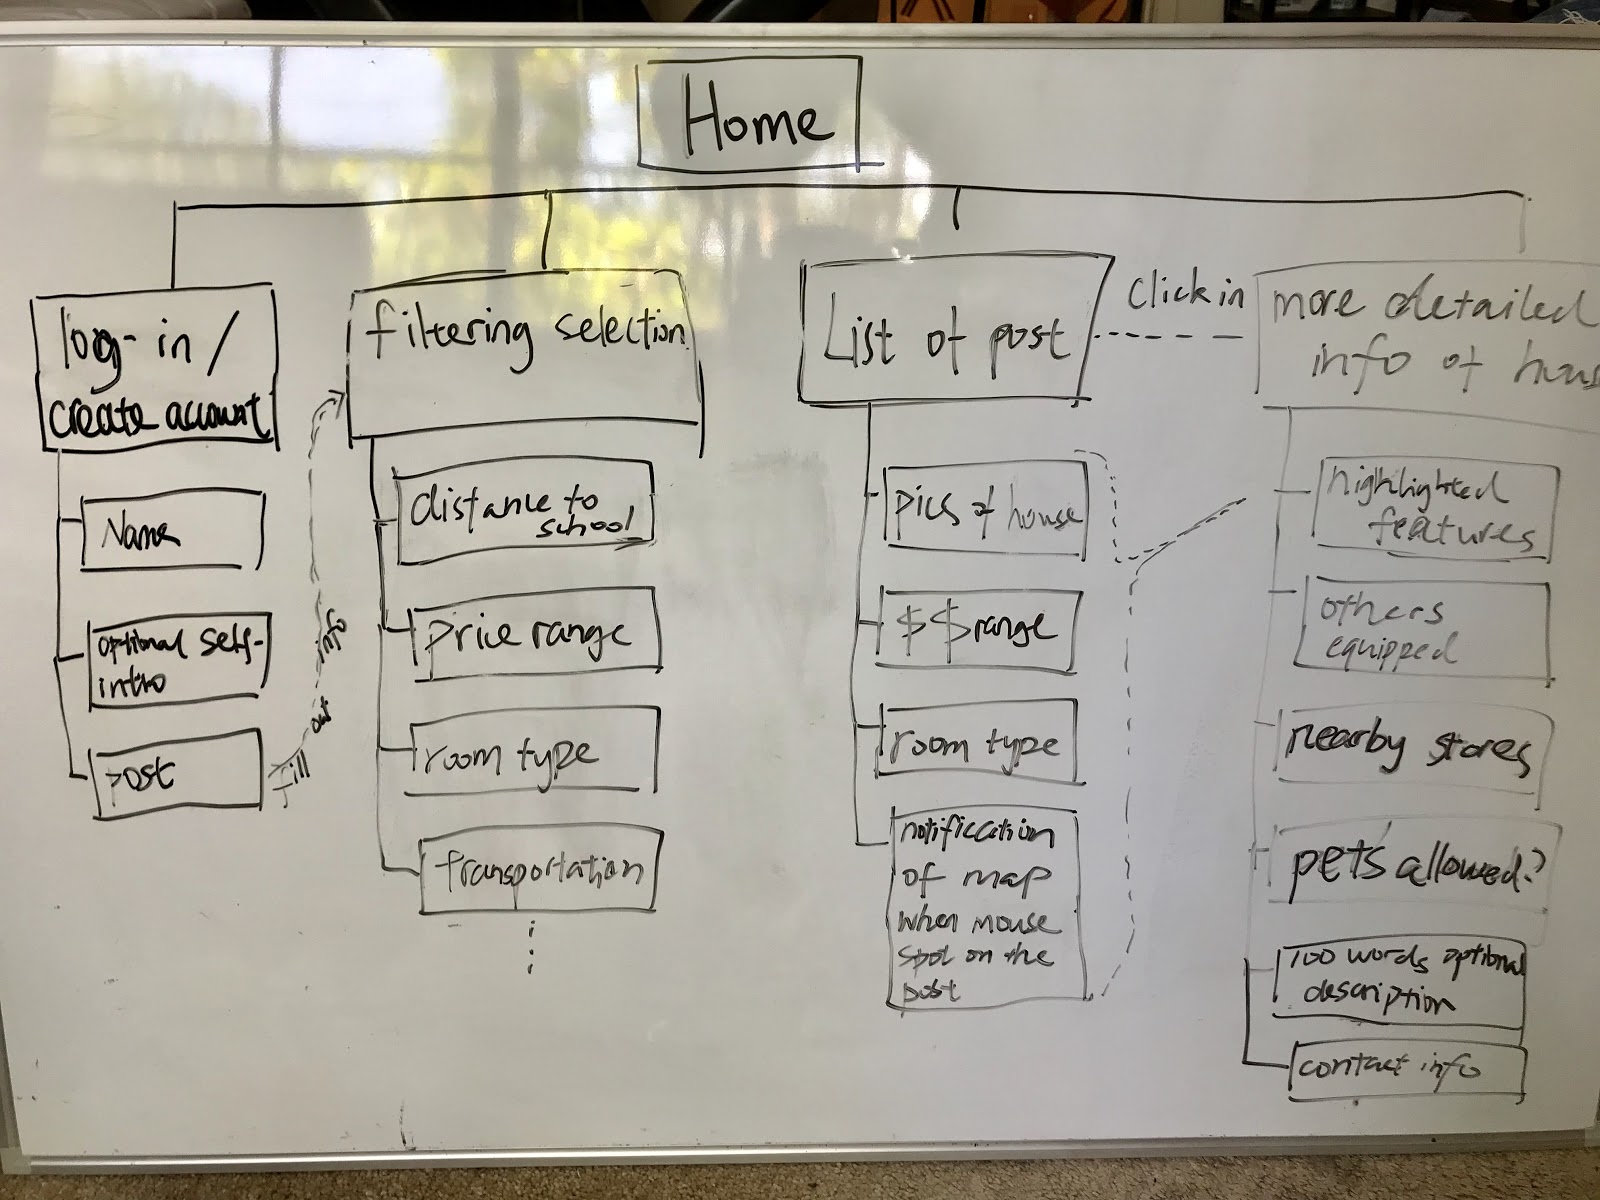 Home
log-in /
create account
Name
optional self-
intro
post
Fill out info
filtering selection
distance to
school
price range
room type
transportation
List of post
pics of house
$$range
room type
notification
of map
when mouse
spot on the
post
Click in
more detailed
info of hous
highlighted
features
others
equipped
nearby stores
pets allowed?
100 words optional
description
contact info